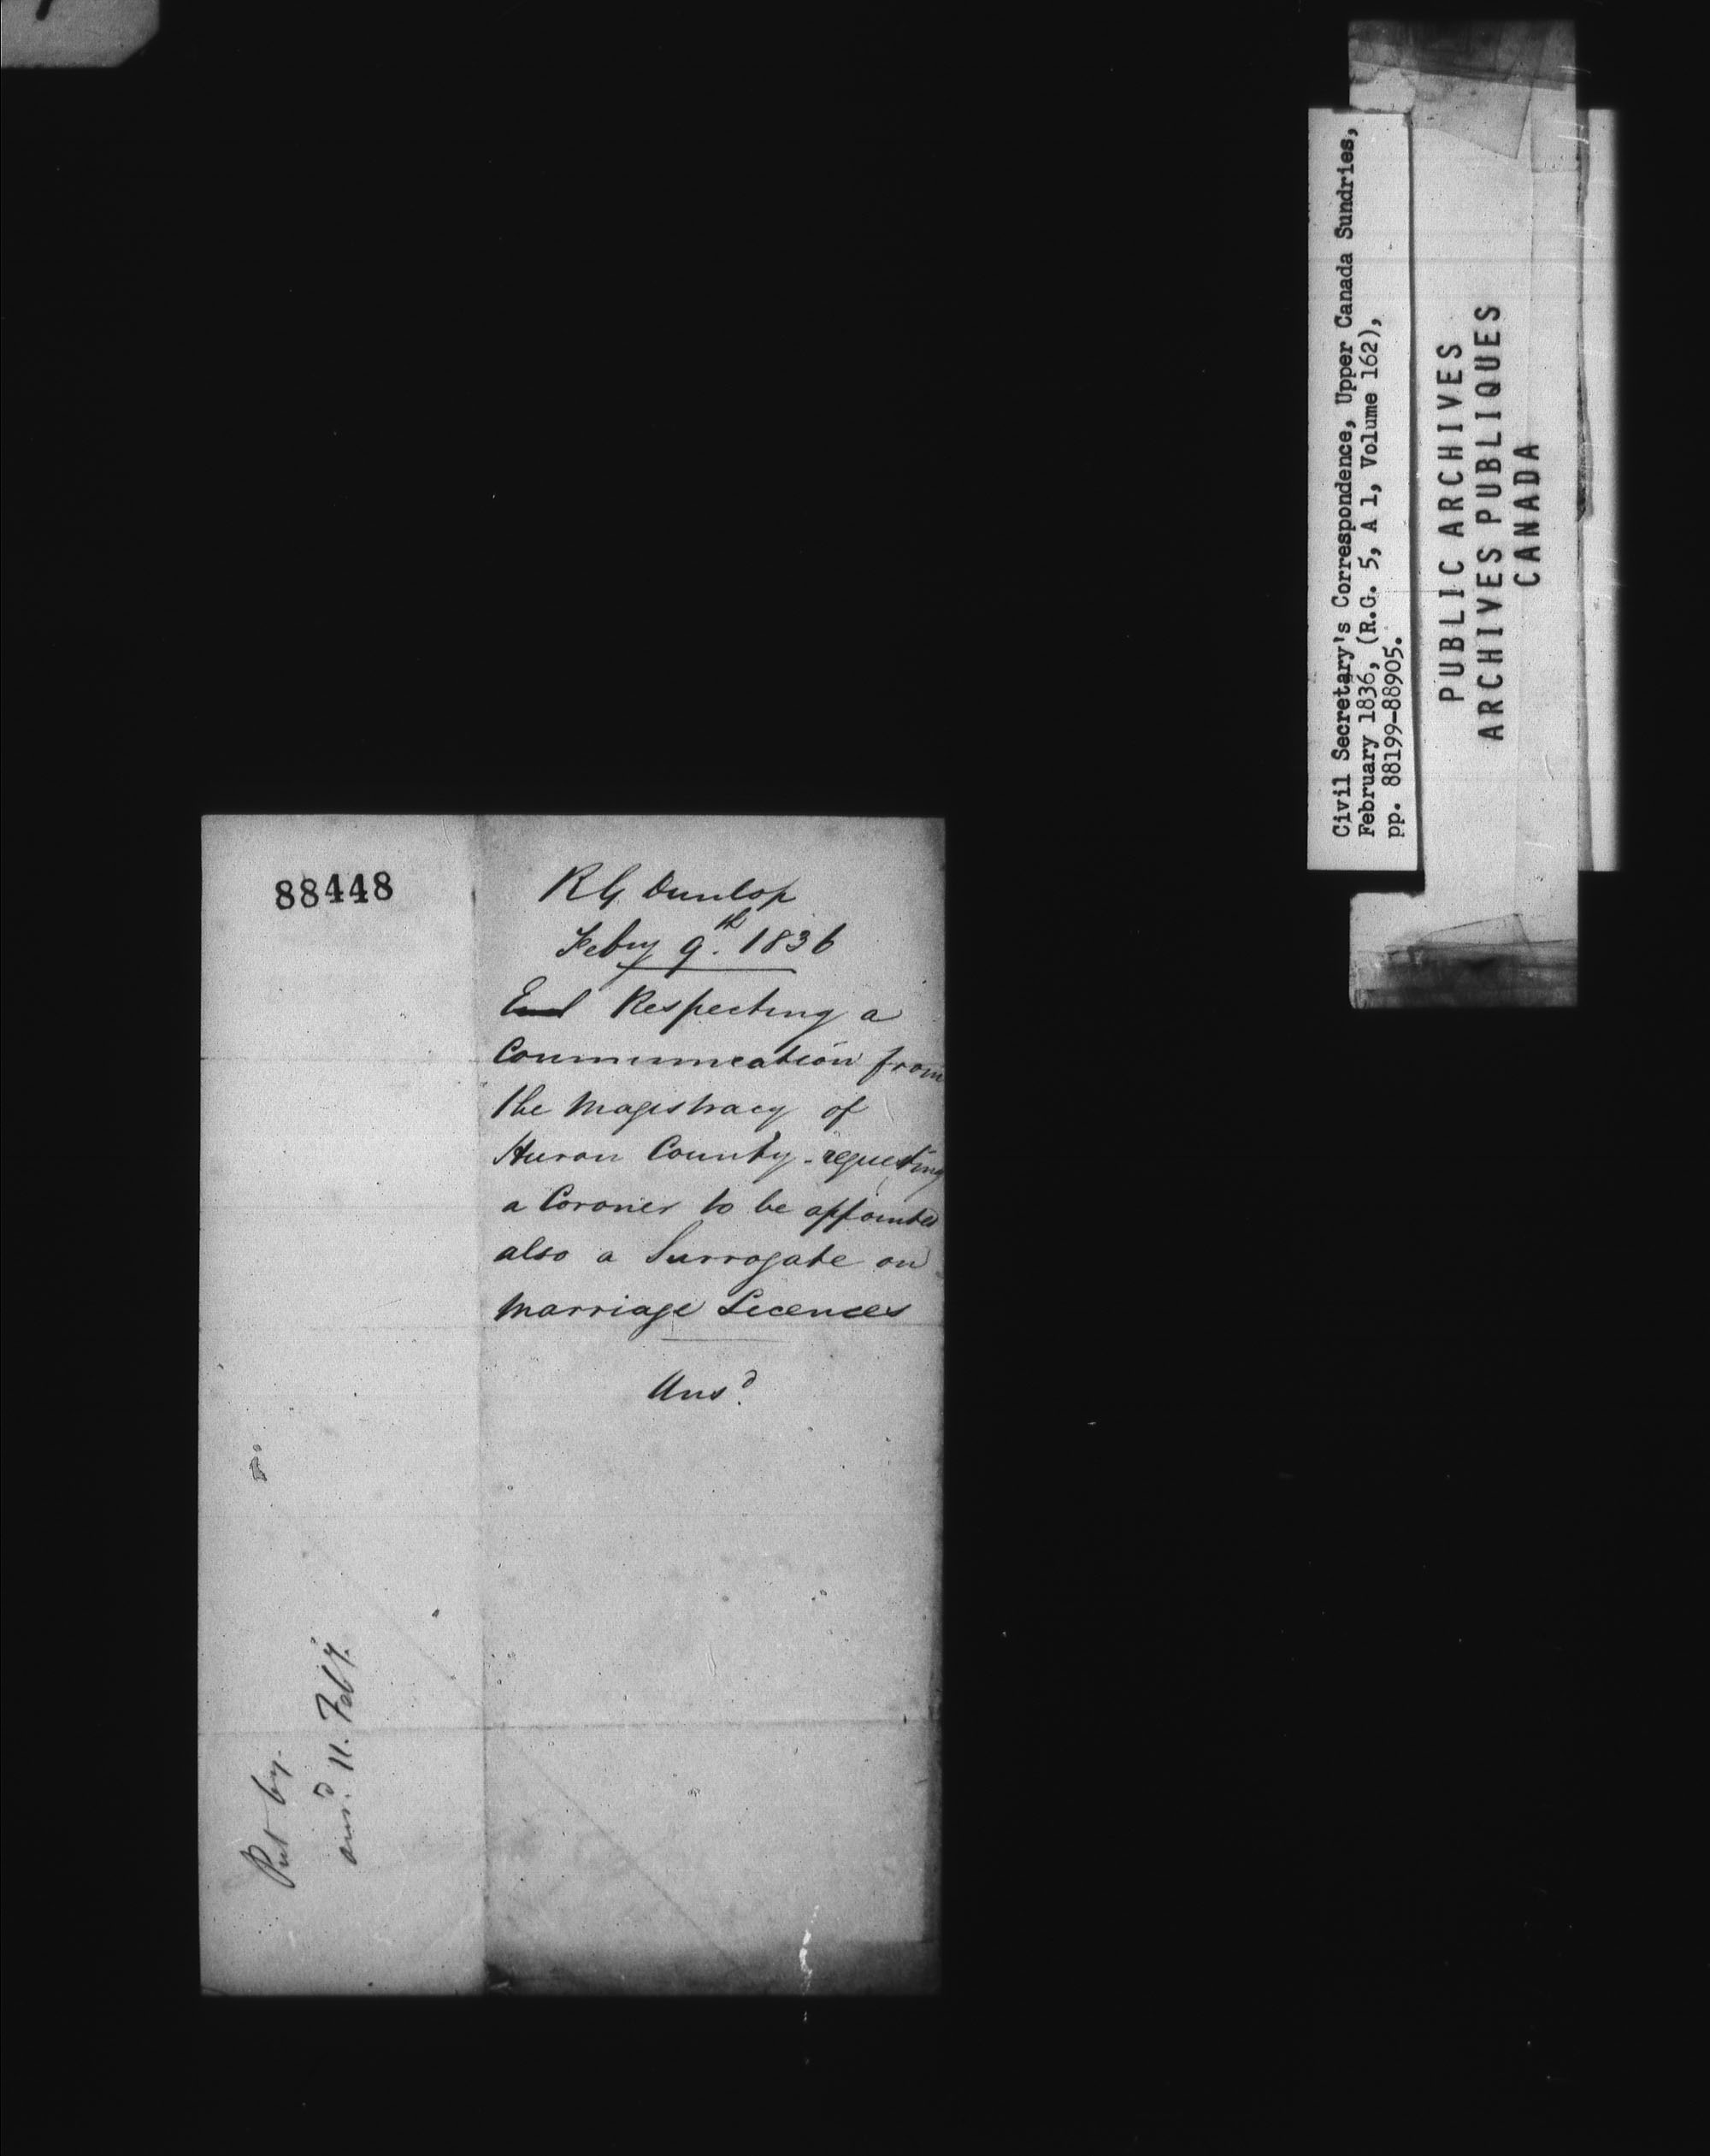 88448
R G Dunlop
Feby 9th. 1836
Respecting a
Communication from
the Magistracy of
Huron County - requesting
a Coroner to be appointed
also a Surrogate on
Marriage Licences
Ansd.
Put by.
ansd. 11. Feby.
Civil Secretary's Correspondence, Upper Canada Sundries,
February 1836, (R.G. 5, A 1, Volume 162),
pp. 88199-88905.
PUBLIC ARCHIVES
ARCHIVES PUBLIQUES
CANADA